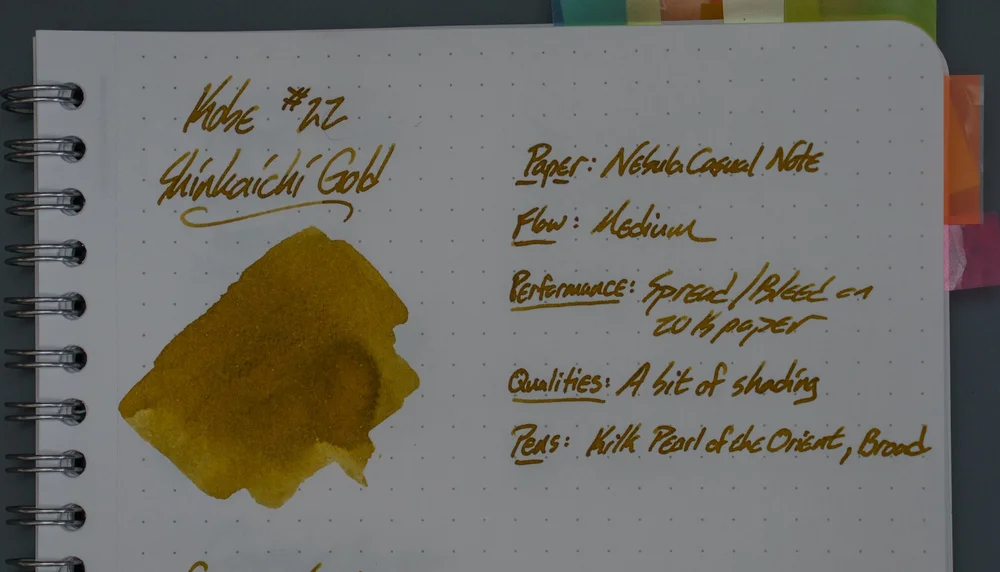 Kobe #22
Shinkaichi Gold
Paper: Nebula Casual Note
Flow: Medium
Performance: Spread/Bleed on
20 lb paper
Qualities: A bit of shading
Pens: Kilk Pearl of the Orient, Broad